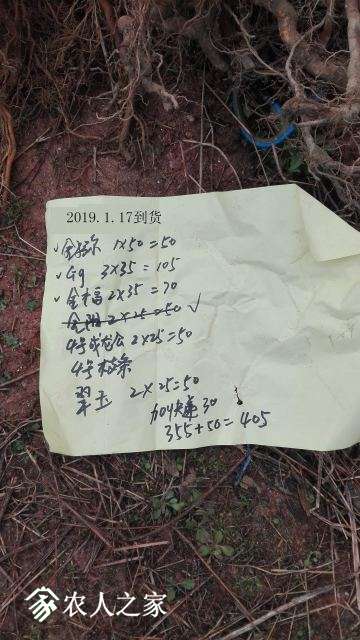 2019.1.17到货
✓ 1×50=50
✓ G9 3×35=105
✓ 金福 2×35=70
金阳 2×25=50 ✓
4号 2×25=50
4号
翠玉 2×25=50
30
355+50=405
农人之家